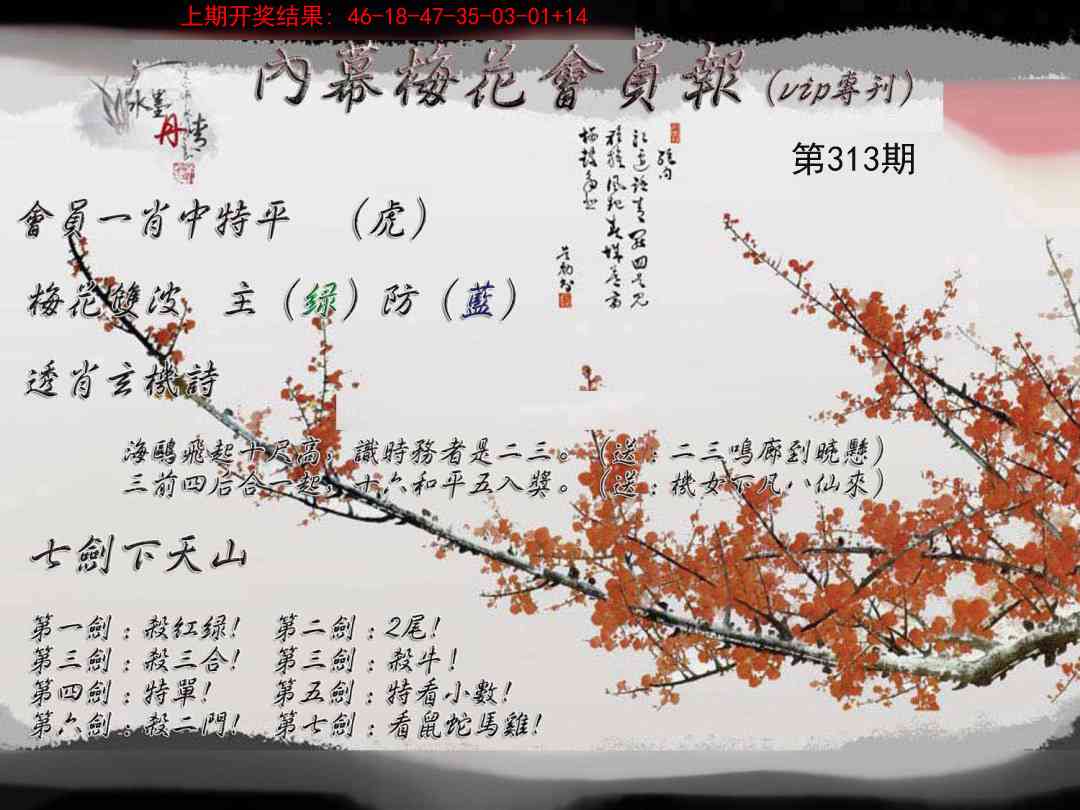 上期开奖结果: 46-18-47-35-03-01+14
內幕梅花會員報(vip專刊)
水墨
丹青
第313期
會員一肖中特平 (虎)
梅花雙波 主(绿)防(藍)
透肖玄機詩
海鷗飛起十尺高，識時務者是二三。(送:二三鳴廊到曉懸)
三前四后合一起，十六和平五入獎。(送:機女下凡八仙來)
七劍下天山
第一劍:殺紅绿! 第二劍:2尾!
第三劍:殺三合! 第三劍:殺牛!
第四劍:特單! 第五劍:特看小數!
第六劍:殺二門! 第七劍:看鼠蛇馬雞!